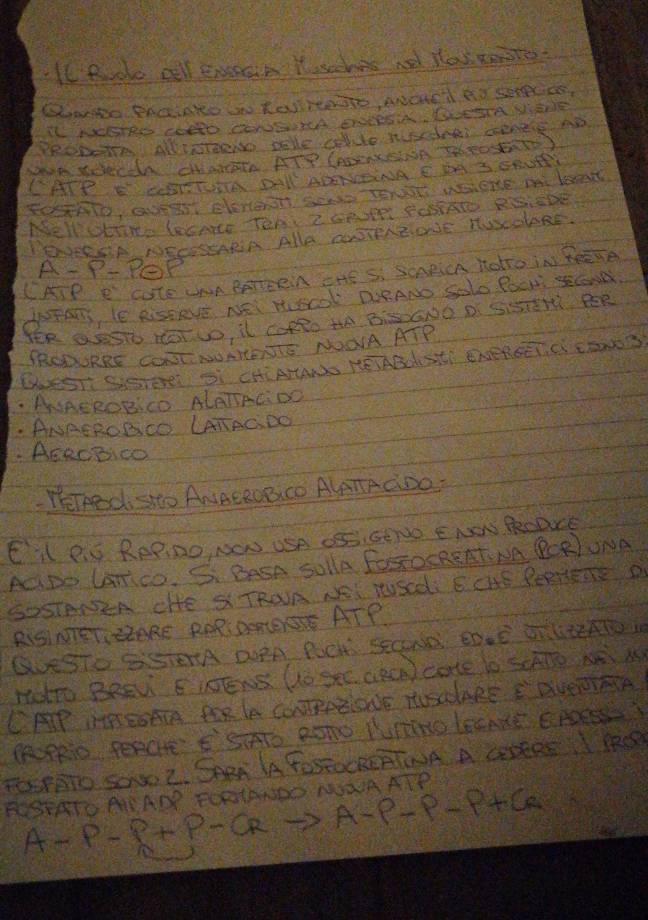 - Il Ruolo dell'Energia Muscolare nel Movimento -
Quando facciamo un movimento, anche il più semplice,
il nostro corpo consuma energia. Questa viene
prodotta all'interno delle cellule muscolari grazie ad
una molecola chiamata ATP (adenosina trifosfato)
L'ATP è costituita dall'adenosina e da 3 gruppi
fosfato, questi elementi sono tenuti insieme dai legami.
Nell'ultimo legame tra i 2 gruppi fosfato risiede
l'energia necessaria alla contrazione muscolare.
A - P - P - P
L'ATP è come una batteria che si scarica molto in fretta
infatti, le riserve nei muscoli durano solo pochi secondi.
Per questo motivo, il corpo ha bisogno di sistemi per
produrre continuamente nuova ATP.
Questi sistemi si chiamano metabolismi energetici e sono 3:
· Anaerobico Alattacido
· Anaerobico Lattacido
· Aerobico
- Metabolismo Anaerobico Alattacido -
E' il più rapido, non usa ossigeno e non produce
acido lattico. Si basa sulla fosfocreatina (PCR) una
sostanza che si trova nei muscoli e che permette di
risintetizzare rapidamente ATP.
Questo sistema dura pochi secondi ed è utilizzato
molto brevi e intensi (10 sec. circa) come lo scatto nei
L'ATP impiegata per la contrazione muscolare è diventata
proprio perché è stato rotto l'ultimo legame e adesso i
fosfato sono 2. Sarà la fosfocreatina a cedere il
fosfato all'ADP formando nuova ATP
A - P - P + P - CR → A - P - P - P + CR